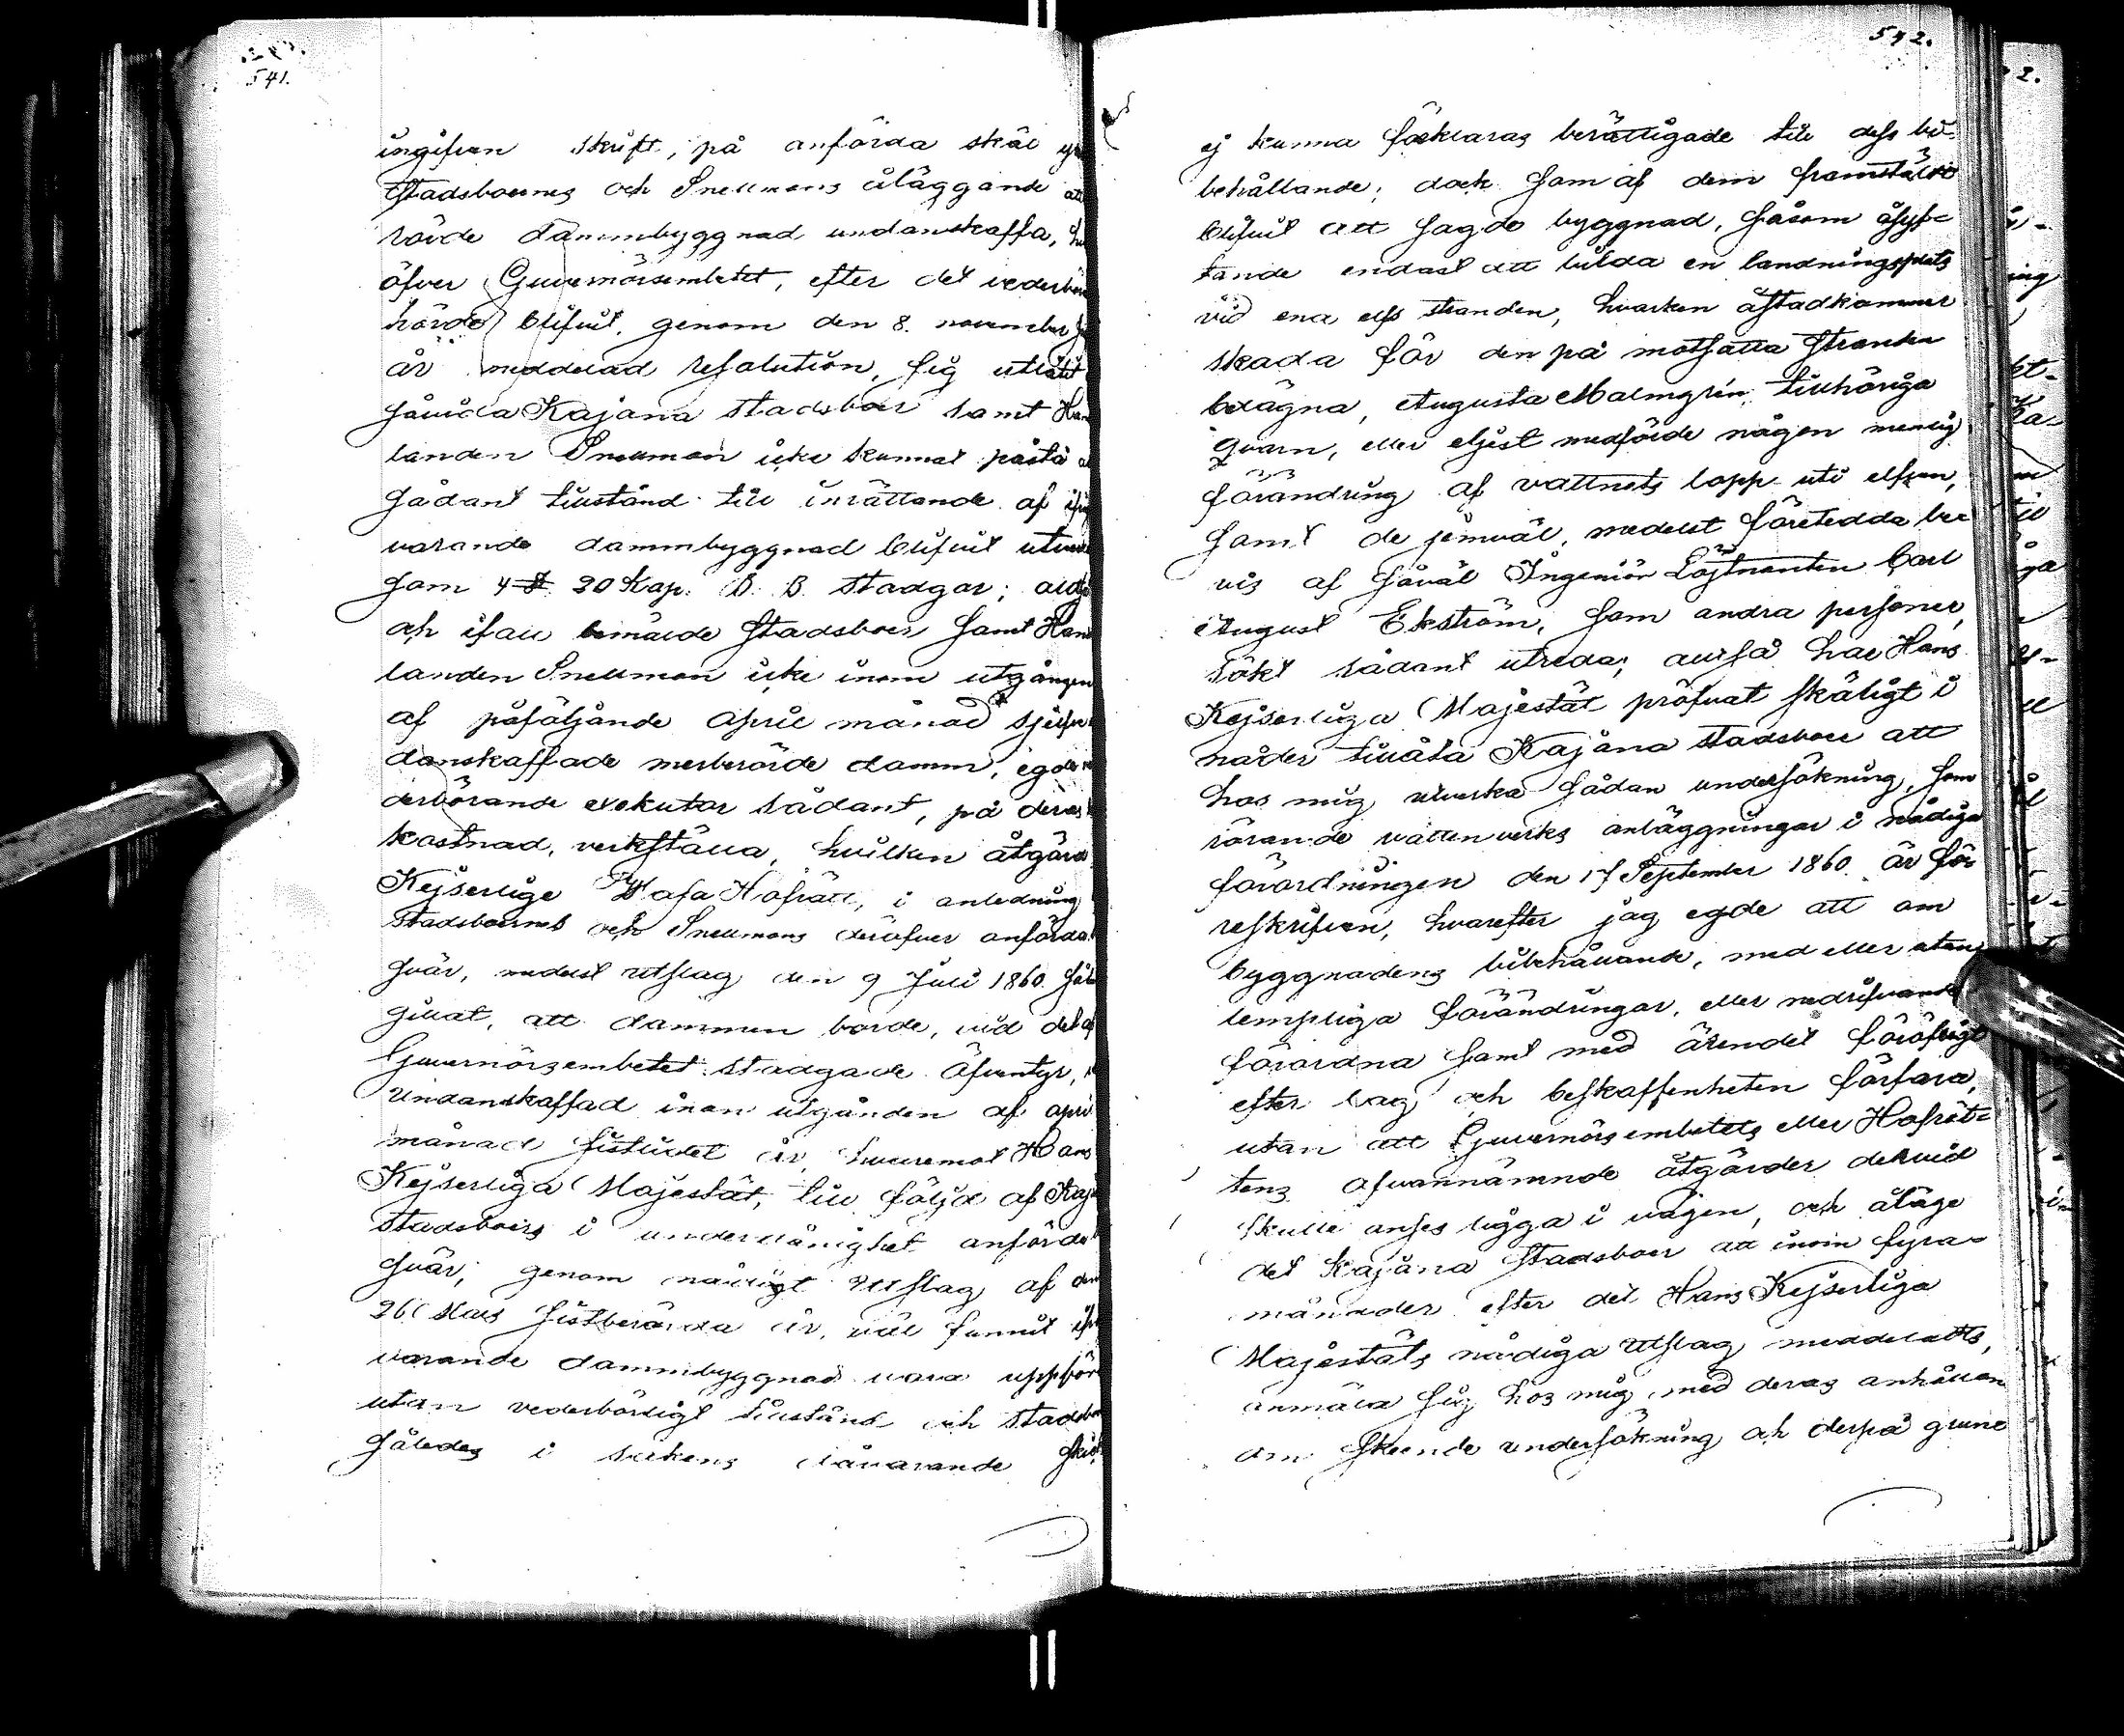 541.
ingifven skrift, på anförda skäl
Stadsboernes och Snellmans åläggande att
rörde dammbyggnad undanskaffa,
öfver Guvernörsembetet, efter det vederbör
hörde blifvit, genom den 8. november
år meddelad resolution, sig utlåtit
såvida Kajana stadsboer samt Han
landen Snellman icke kunnat påstå
sådant tillstånd till inrättande af ifrå
varande dammbyggnad blifvit utver
som 4 § 20 Kap. B. B. stadgar;
och ifall bemälde Stadsboer samt Han
landen Snellman icke inom utgången
af påföljande April månad sjelfve
danskaffade merberörde damm, egde
derbörande exekutor sådant, på deras
kostnad, verkställa, hvilken åtgärd
Kejserlige Wasa Hofrätt, i anledning
Stadsboernes och Snellmans deröfver anförda
svär, medelst utslag den 9 Juli 1860
gillat, att dammen borde, vid det af
Guvernörsembetet stadgade äfventyr,
undanskaffad inom utgången af april
månad sistlidet år, hvaremot Hans
Kejserliga Majestät, till följd af Kaja
stadsboers i underdånighet anförda
svär, genom nådigt utslag af den
26 Mars sistberörda år, väl funnit ifrå
varande dammbyggnad vara uppför
utan vederbörligt tillstånd och stadsbo
således i sakens dåvarande
542.
ej kunna förklaras berättigade till dess bi-
behållande; dock som af dem framstäldt
blifvit att sagde byggnad, såsom åsyf-
tande endast att bilda en landningsplats
vid ena elfs stranden, hvarken åstadkommer
skada för den på motsatta stranden
belägna, Augusta Malmgrén tillhöriga
qvarn, eller eljest medförde någon menlig
förändring af vattnets lopp uti elfven,
samt de jemväl, medelst företedda be-
vis af såväl Ingeniör Löjtnanten Carl
August Ekström, som andra personer,
sökt sådant utreda; alltså har Hans
Kejserliga Majestät pröfvat skäligt i
nåder tillåta Kajana stadsboer att
hos mig utverka sådan undersökning, som
rörande vattenverks anläggningar i nådiga
förordningen den 17 September 1860 är fö-
reskrifven, hvarefter jag egde att om
byggnadens bibehållande, med eller utan
lempliga förändringar, eller nedrifvande
förordna samt med ärendet föröfrigt
efter lag och beskaffenheten förfara,
utan att Guvernörsembetets eller Hofrät-
tens ofvannämnde åtgärder dervid
skulle anses ligga i vägen, och ålåge
det Kajana Stadsboer att inom fyra
månader efter det Hans Kejserliga
Majestäts nådiga utslag meddelatts,
anmäla sig hos mig med deras anhållan
om skeende undersökning och derpå grund